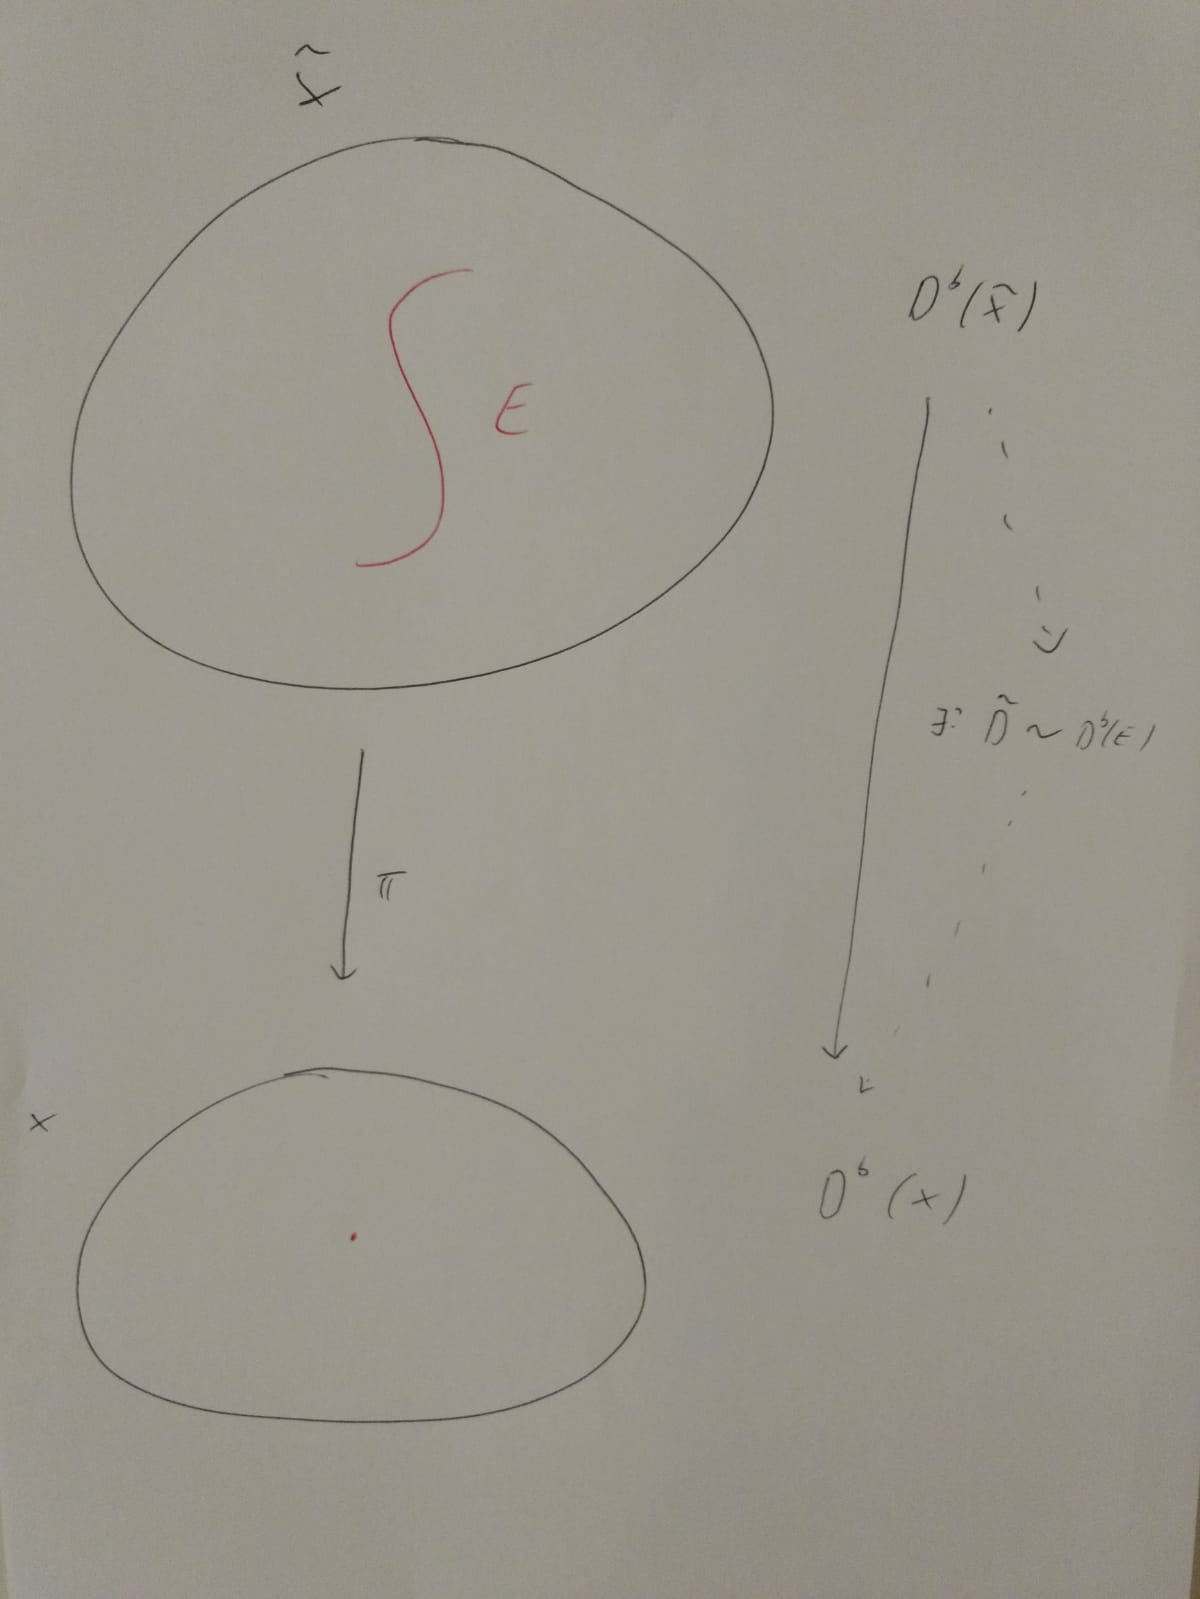 X̃
E
Dᵇ(X̃)
∃: D̃ ~ Dᵇ(E)
π
X
Dᵇ(X)